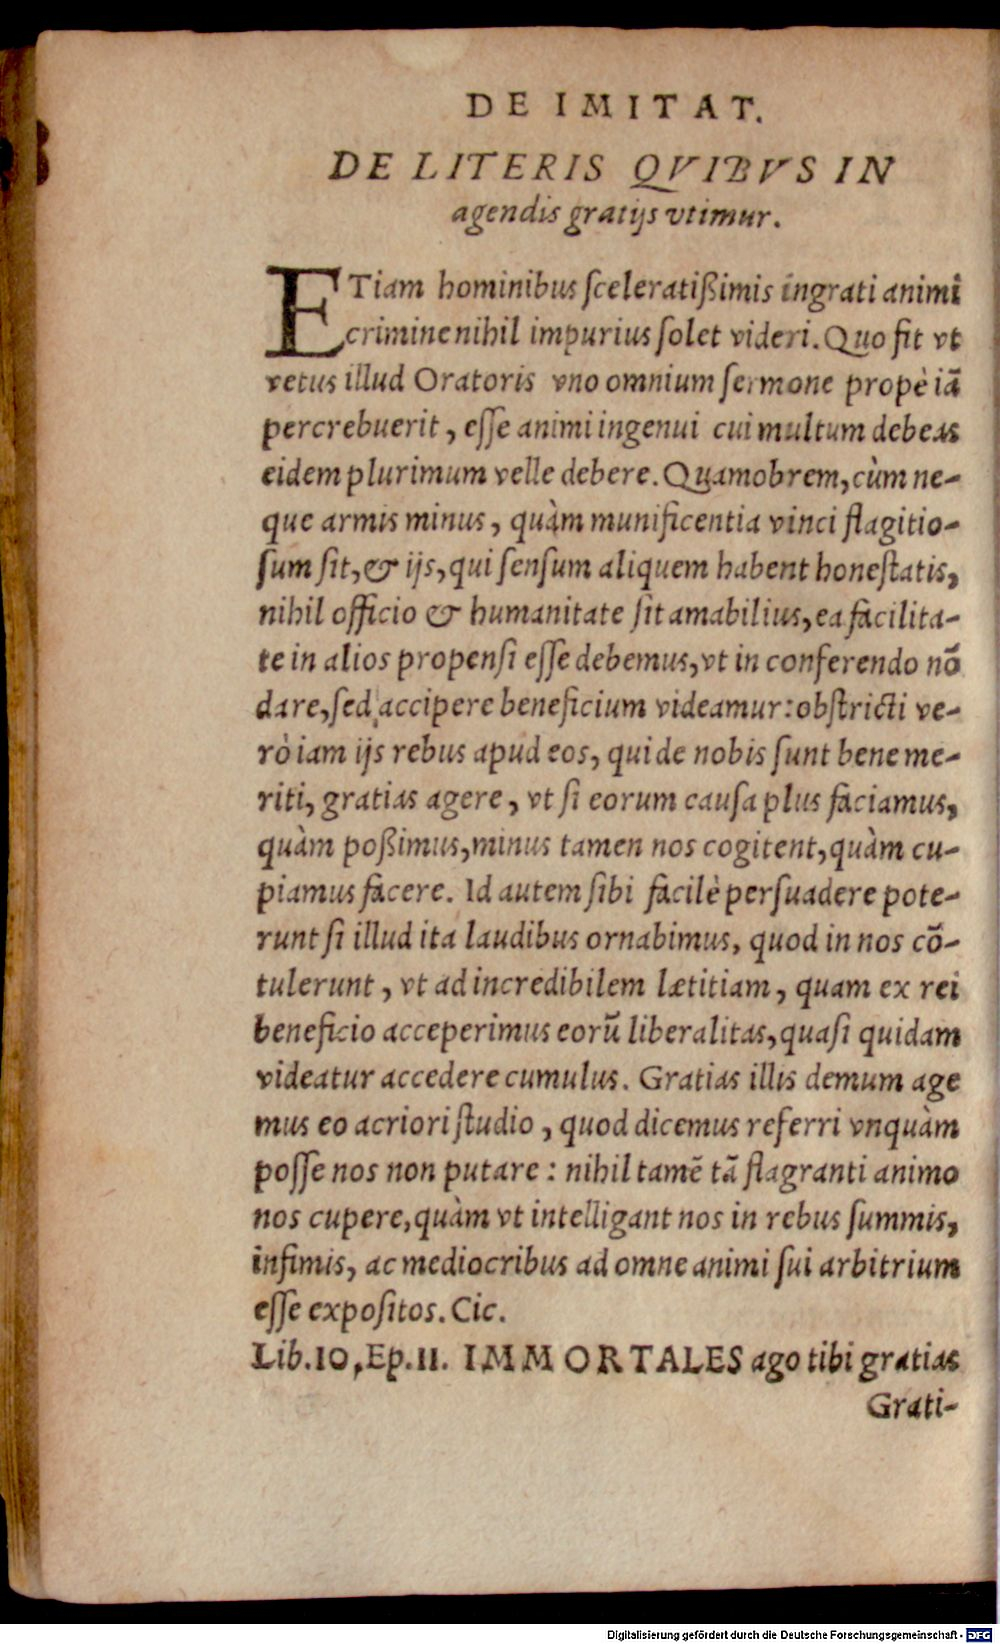 DE IMITAT.
DE LITERIS QVIBVS IN
agendis gratijs vtimur.
ETiam hominibus ſceleratißimis ingrati animi
crimine nihil impurius ſolet videri. Quo fit vt
vetus illud Oratoris vno omnium ſermone propè iā
percrebuerit, eſſe animi ingenui cui multum debeas
eidem plurimum velle debere. Quamobrem, cùm ne-
que armis minus, quàm munificentia vinci flagitio-
ſum ſit, & ijs, qui ſenſum aliquem habent honeſtatis,
nihil officio & humanitate ſit amabilius, ea facilita-
te in alios propenſi eſſe debemus, vt in conferendo nō
dare, ſed accipere beneficium videamur: obſtricti ve-
rò iam ijs rebus apud eos, qui de nobis ſunt bene me-
riti, gratias agere, vt ſi eorum cauſa plus faciamus,
quàm poßimus, minus tamen nos cogitent, quàm cu-
piamus facere. Id autem ſibi facilè perſuadere pote-
runt ſi illud ita laudibus ornabimus, quod in nos cō-
tulerunt, vt ad incredibilem lætitiam, quam ex rei
beneficio acceperimus eorū liberalitas, quaſi quidam
videatur accedere cumulus. Gratias illis demum age
mus eo acriori ſtudio, quod dicemus referri vnquàm
poſſe nos non putare: nihil tamē tā flagranti animo
nos cupere, quàm vt intelligant nos in rebus ſummis,
infimis, ac mediocribus ad omne animi ſui arbitrium
eſſe expoſitos. Cic.
Lib. 10, Ep. 11. IMMORTALES ago tibi gratias
Grati-
Digitalisierung gefördert durch die Deutsche Forschungsgemeinschaft - DFG